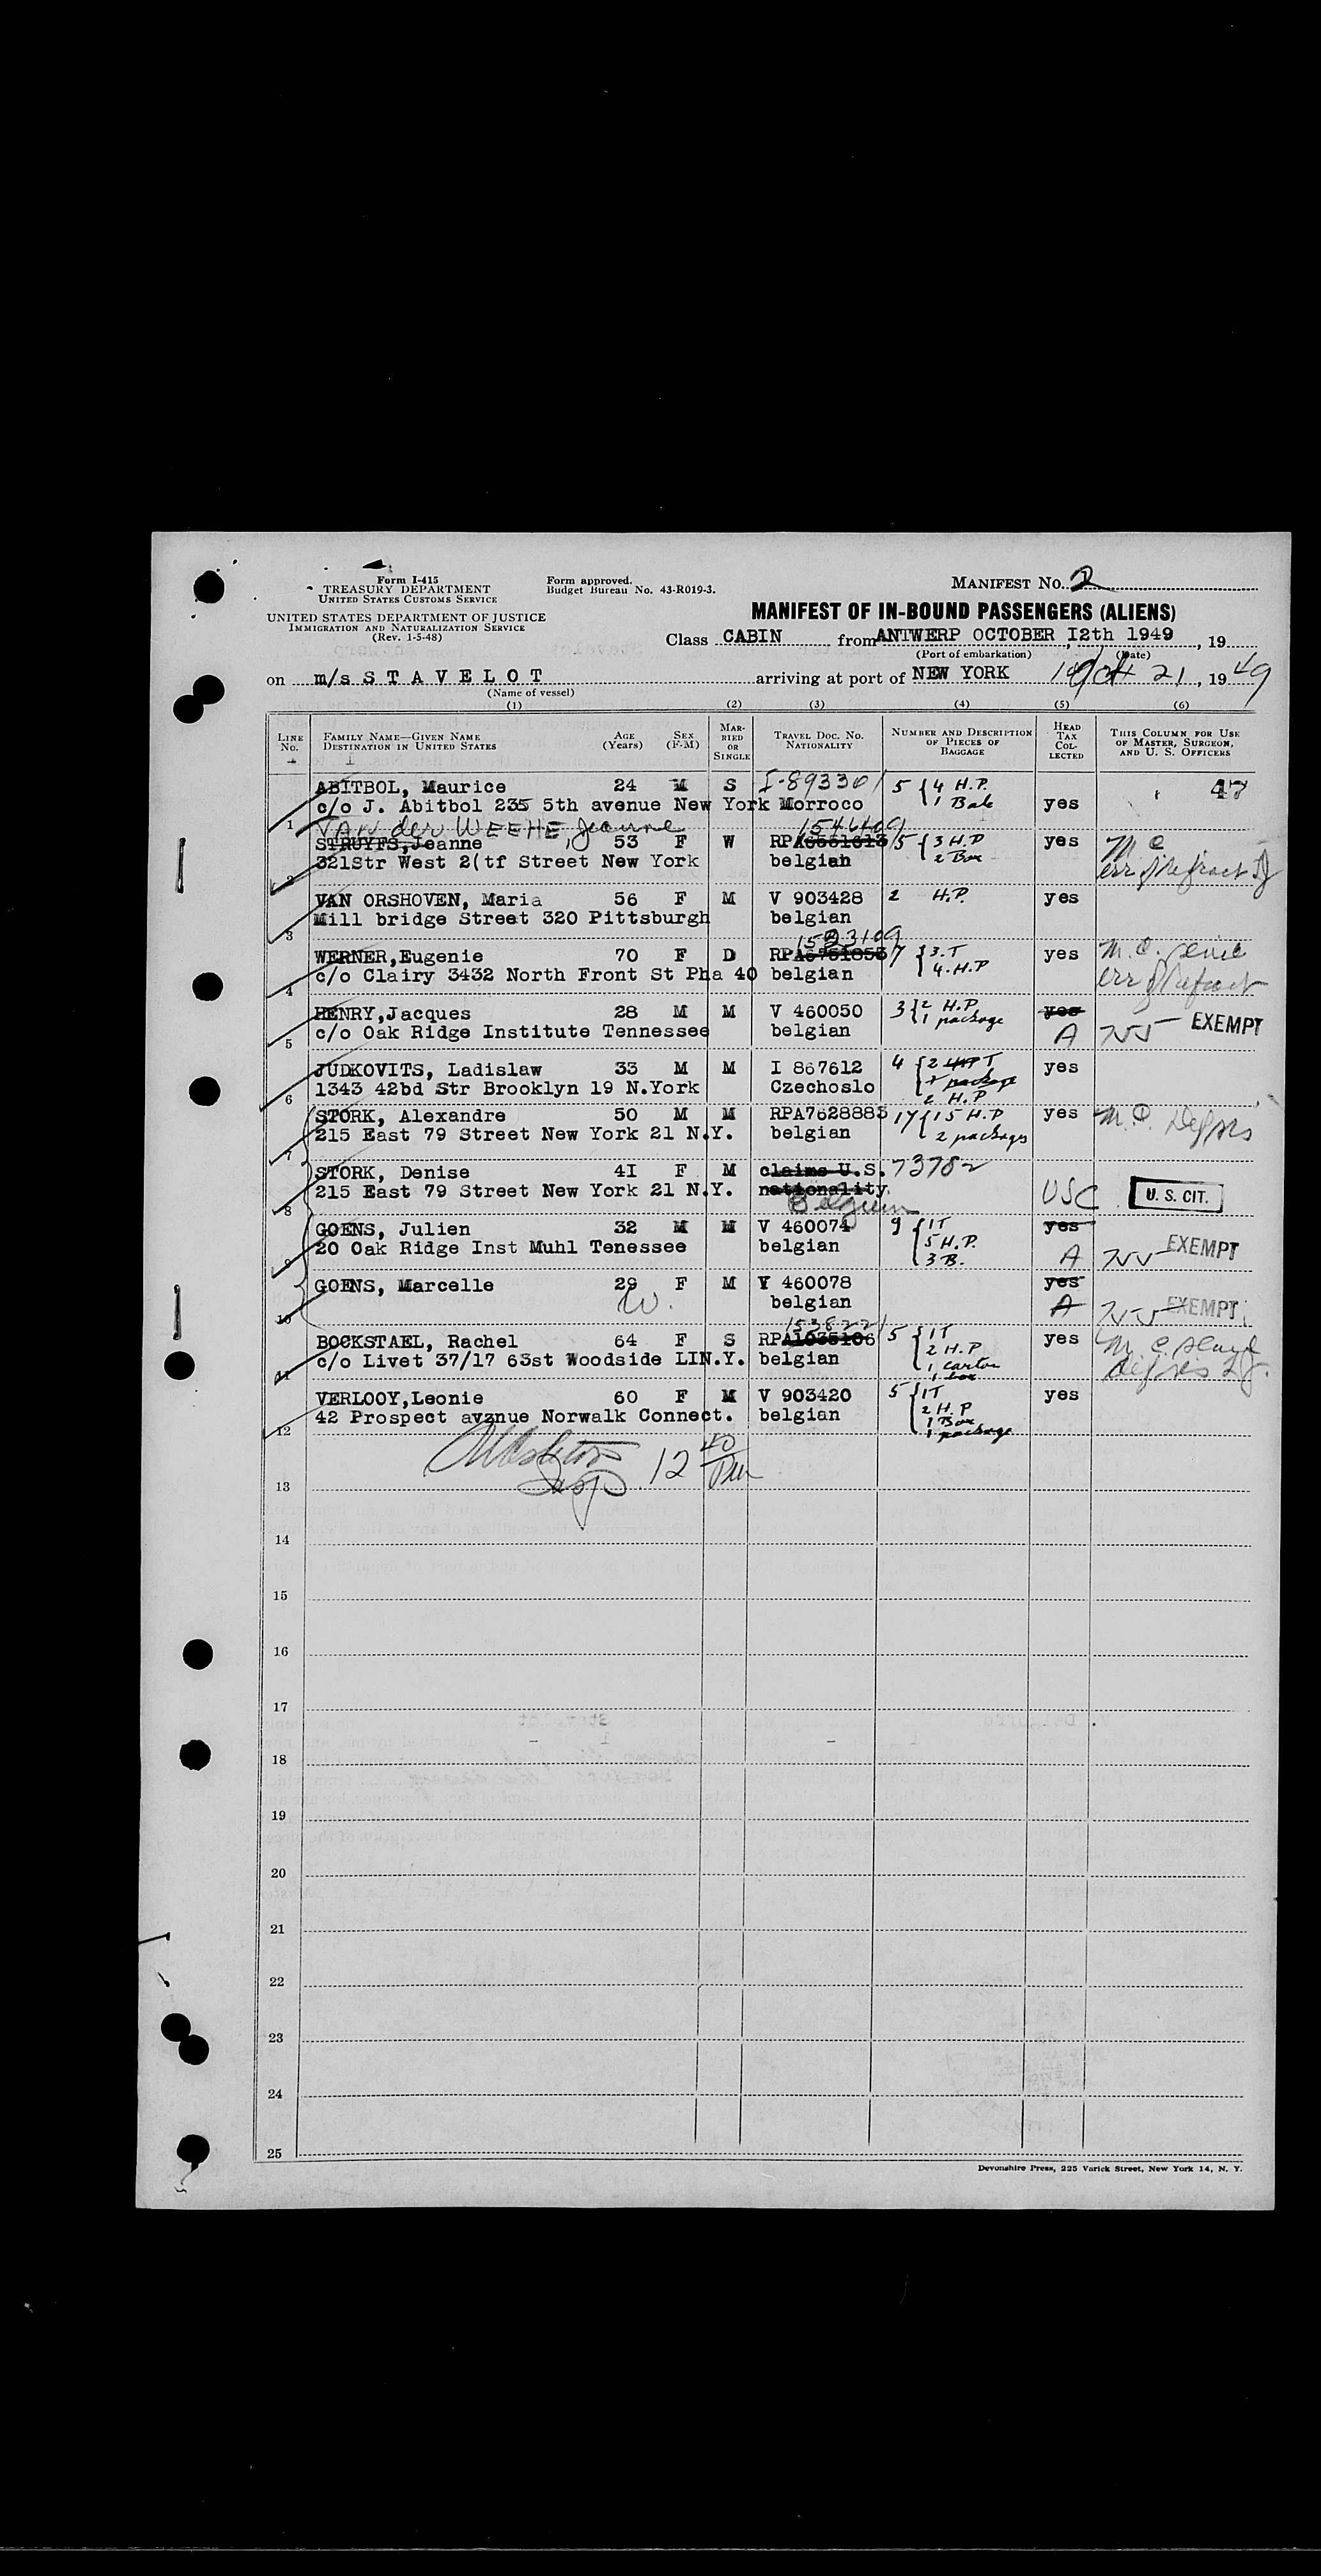 Form I-415
TREASURY DEPARTMENT
UNITED STATES CUSTOMS SERVICE
Form approved.
Budget Bureau No. 43-R019-3.
MANIFEST No. 2
UNITED STATES DEPARTMENT OF JUSTICE
IMMIGRATION AND NATURALIZATION SERVICE
(Rev. 1-5-48)
MANIFEST OF IN-BOUND PASSENGERS (ALIENS)
Class CABIN from ANTWERP OCTOBER I2th 1949, 19
(Port of embarkation) (Date)
on m/s S T A V E L O T arriving at port of NEW YORK Oct 21, 1949
(Name of vessel)
(1) (2) (3) (4) (5) (6)
LINE No. FAMILY NAME—GIVEN NAME DESTINATION IN UNITED STATES AGE (Years) SEX (F-M) MARRIED OR SINGLE TRAVEL DOC. NO. NATIONALITY NUMBER AND DESCRIPTION OF PIECES OF BAGGAGE HEAD TAX COLLECTED THIS COLUMN FOR USE OF MASTER, SURGEON, AND U. S. OFFICERS
ABITBOL, Maurice 24 M S I-893301 5 { 4 H.P. 47
1 c/o J. Abitbol 235 5th avenue New York Morroco 1 Bale yes
VAN der WEEHE, Jeanne 1546409
STRUYFS, Jeanne 53 F W RPA6551613 5 { 3 H.P yes M C
2 321Str West 2(tf Street New York belgian 2 Box err of refract
VAN ORSHOVEN, Maria 56 F M V 903428 2 H.P. yes
3 Mill bridge Street 320 Pittsburgh belgian
1523109
WERNER,Eugenie 70 F D RPA6751853 7 { 3.T yes M.C. senile
4 c/o Clairy 3432 North Front St Pha 40 belgian 4.H.P err of refract
HENRY,Jacques 28 M M V 460050 3 { 2 H.P. yes
5 c/o Oak Ridge Institute Tennessee belgian 1 package A EXEMPT
JUDKOVITS, Ladislaw 33 M M I 867612 4 { 2 T yes
6 1343 42bd Str Brooklyn 19 N.York Czechoslo package
2 H.P
STORK, Alexandre 50 M M RPA7628883 17 { 15 H.P yes M.C.
7 215 East 79 Street New York 21 N.Y. belgian 2 packages
STORK, Denise 4I F M claims U.S. 73782
8 215 East 79 Street New York 21 N.Y. nationality USC U. S. CIT.
Belgium
GOENS, Julien 32 M M V 460074 9 { 1T yes
9 20 Oak Ridge Inst Muhl Tenessee belgian 5 H.P. A EXEMPT
3 B.
GOENS, Marcelle 29 F M V 460078 yes
10 W. belgian A EXEMPT
1538221
BOCKSTAEL, Rachel 64 F S RPA1035106 5 { 1T yes M.C.
11 c/o Livet 37/17 63st Woodside LIN.Y. belgian 2 H.P
1 carton
1 box
VERLOOY,Leonie 60 F M V 903420 5 { 1T yes
12 42 Prospect avznue Norwalk Connect. belgian 2 H.P
1 Box
1 package
Insp. 12 40 Pm
13
14
15
16
17
18
19
20
21
22
23
24
25
Devonshire Press, 225 Varick Street, New York 14, N. Y.